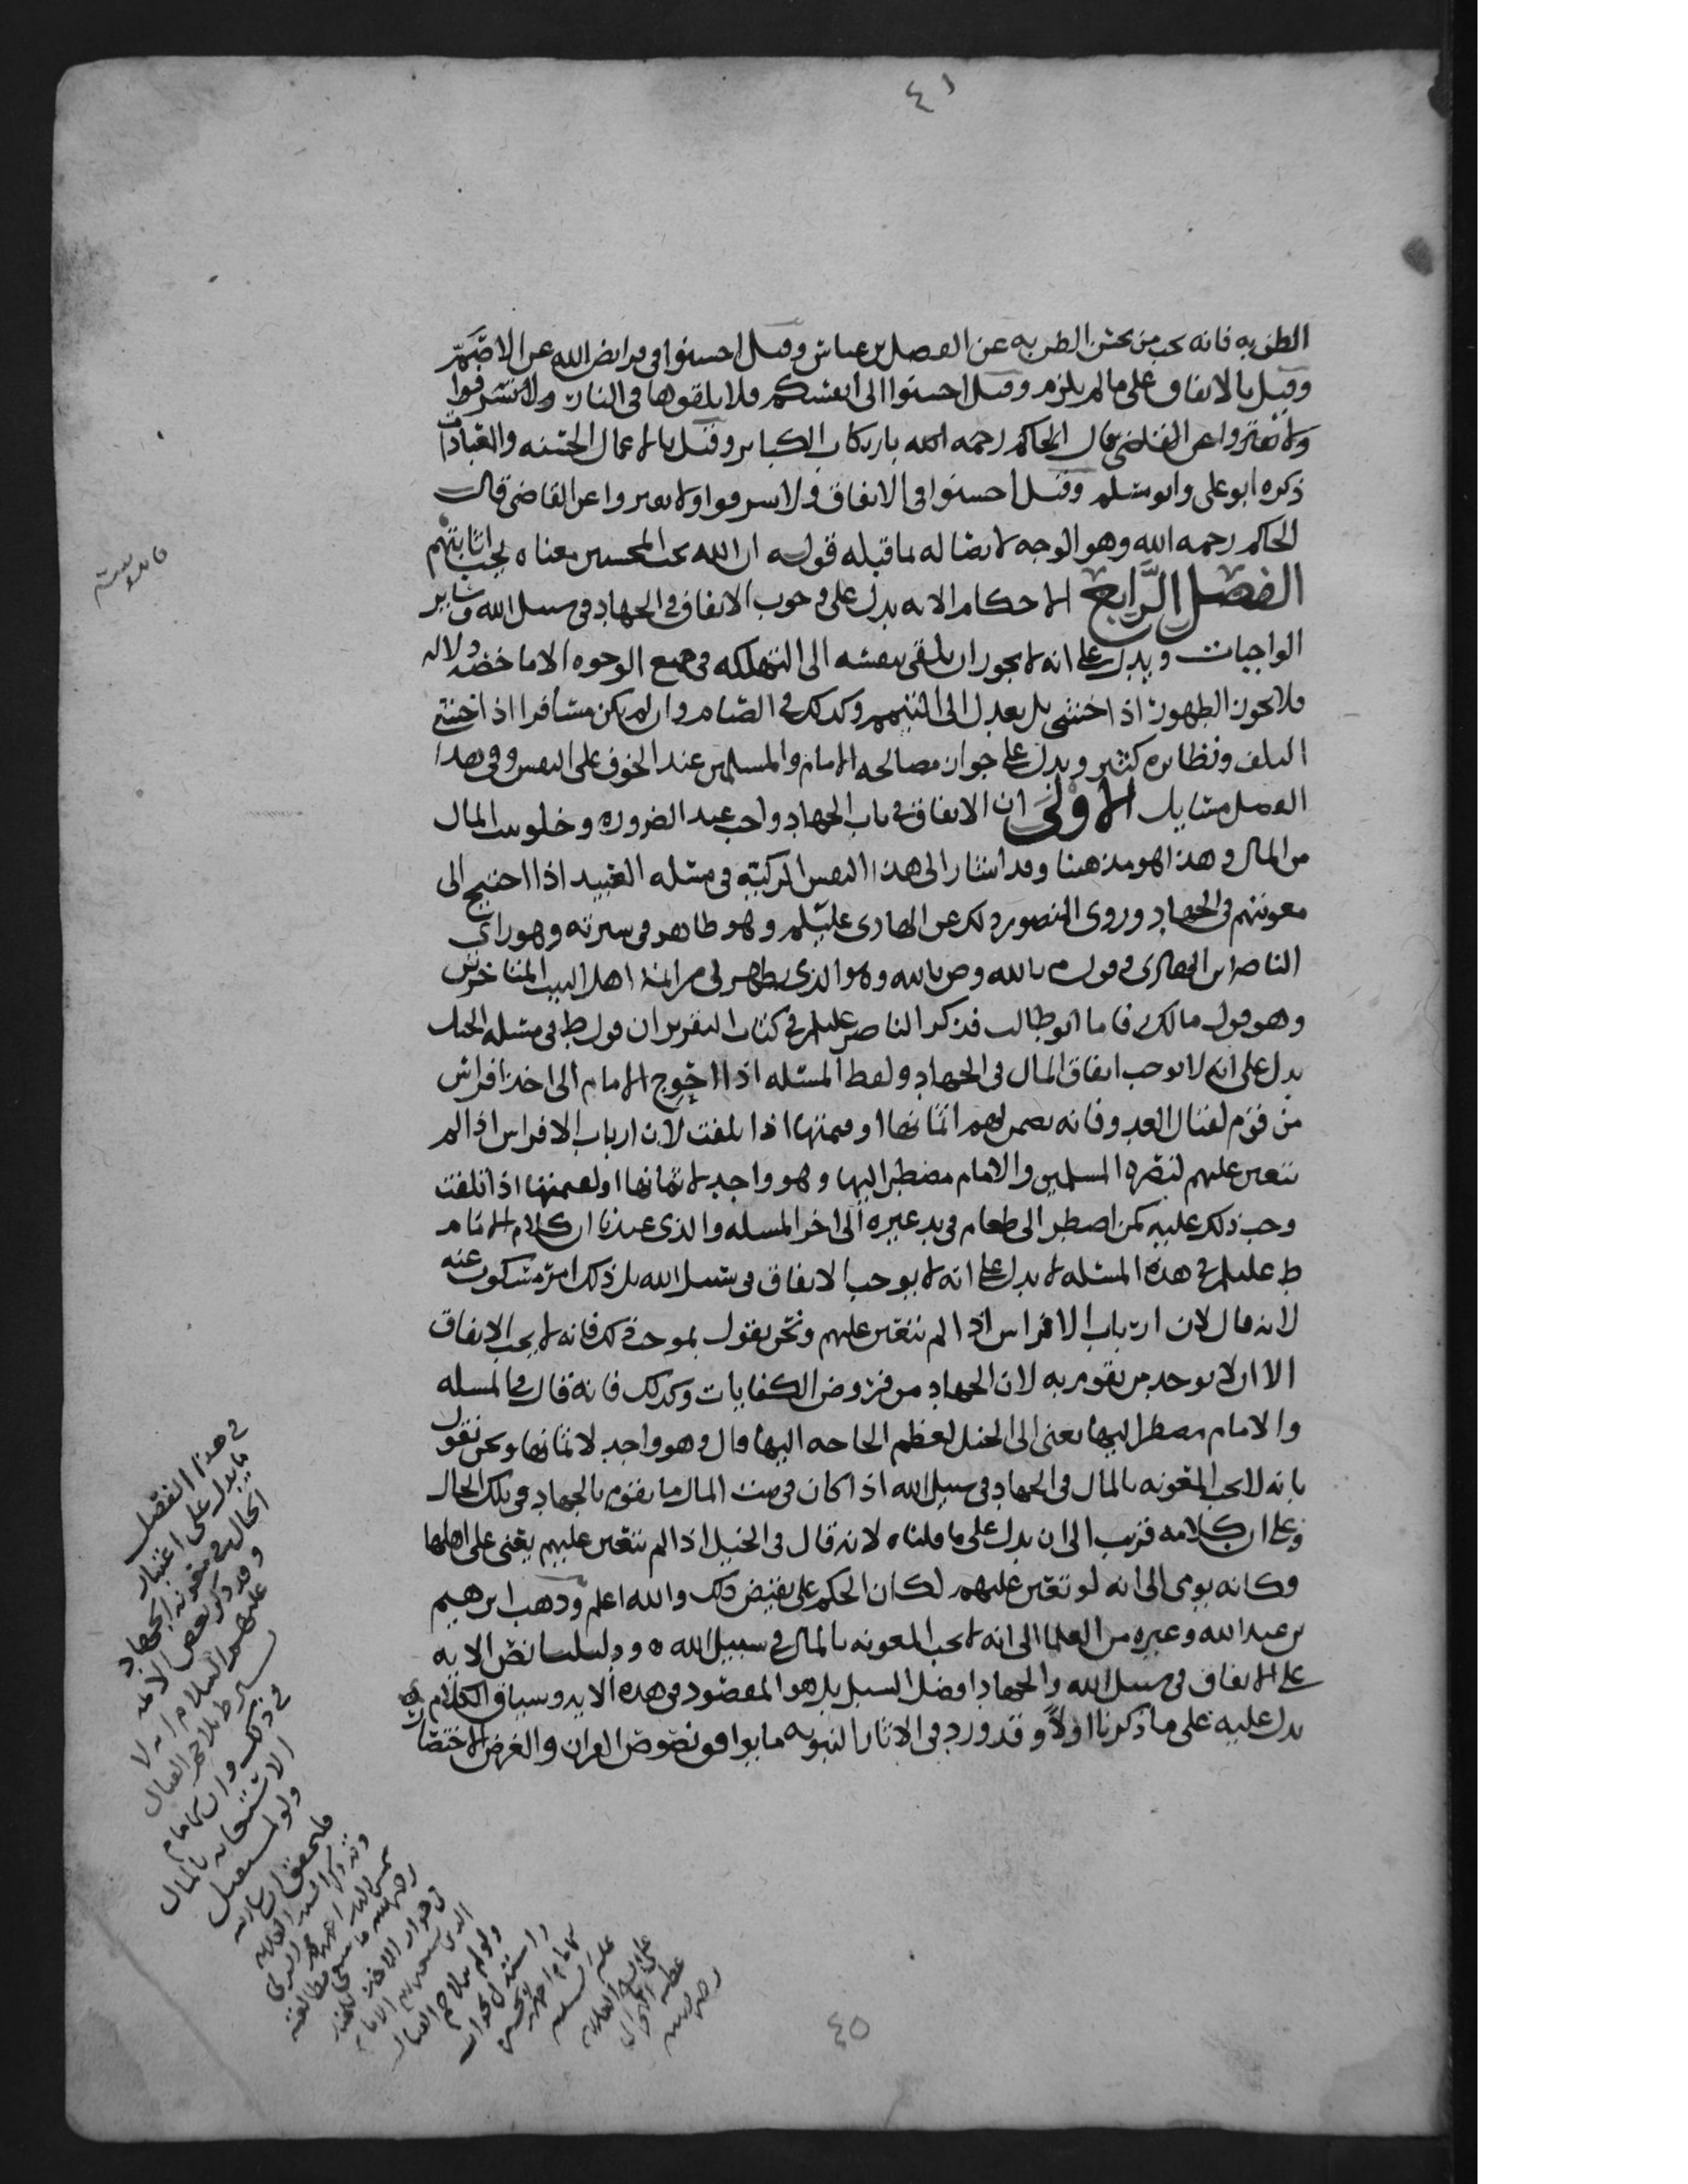 ٤١
الظن به فانه يحب من يحسن الظن به عن الفضل بن عباس وقيل احسنوا في فرايض الله عن الاصم
وقيل بالانفاق على ما لم يلزم وقيل احسنوا الى انفسكم فلا تلقوها في النار ولا تسرفوا
ولا تقتروا عن القاضي قال الحاكم رحمه الله بارتكاب الكباير وقيل بالاعمال الحسنه والعبادات
ذكره ابو علي وابو مسلم وقيل احسنوا في الانفاق ولا تسرفوا ولا تقتروا عن القاضي قال
الحاكم رحمه الله وهو الوجه لاتصاله بما قبله قوله ان الله يحب المحسنين معناه يحب اثابتهم
الفصل الرابع الاحكام الايه تدل على وجوب الانفاق في الجهاد في سبيل الله وساير
الواجبات ويدل على انه لا يجوز ان يلقي بنفسه الى التهلكه في جميع الوجوه الا ما خصه دلاله
فلا يجوز الطهور اذا خشي بل يعدل الى التيمم وكذلك في الصيام وان لم يكن مسافرا اذا خشي
التلف ونظايره كثير ويدل على جواز مصالحه الامام والمسلمين عند الخوف على النفس وفي هذا
الفصل مسايل الاولى ان الانفاق في باب الجهاد واجب عند الضروره وخلو بيت المال
من المال وهذا هو مذهبنا وقد اشار الى هذا النفس الزكيه في مسله العبيد اذا احتيج الى
معونتهم في الجهاد وروى المنصور ذلك عن الهادي عليلم وهو ظاهر في سيرته وهو راي
الناصر ابن الهادي وقول م بالله وص بالله وهو الذي يظهر لي من ائمة اهل البيت المتاخرين
وهو قول مالك فاما ابو طالب فذكر الناصر عليلم في كتاب التقرير ان قول ط في مسله الخيل
يدل على انه لا يوجب انفاق المال في الجهاد ولفظ المسئله اذا احوج الامام الى اخذ افراس
من قوم لقتال العدو فانه يضمن لهم اثمانها او قيمتها اذا تلفت لان ارباب الافراس اذا لم
تتعين عليهم لنصره المسلمين والامام مضطر اليها وهو واجد لاثمانها او لقيمتها اذا تلفت
وجب ذلك عليه كمن اضطر الى طعام في يد غيره الى اخر المسله والذي عندنا ان كلام الامام
ط عليلم في هذه المسئله لا يدل على انه لا يوجب الانفاق في سبيل الله بل ذلك امر مسكوت عنه
لانه قال لان ارباب الافراس اذا لم تتعين عليهم ونحن نقول بموجب ذلك فانه لا يجب الانفاق
الا ان لا يوجد من يقوم به لان الجهاد من فروض الكفايات وكذلك فانه قال في المسله
والامام مضطر اليها يعني الى الخيل لعظم الحاجه اليها قال وهو واجد لاثمانها ونحن نقول
بانه لا يجب المعونه بالمال في الجهاد في سبيل الله اذا كان في بيت المال ما يقوم بالجهاد في تلك الحال
وعلى ان كلامه قريب الى ان يدل على ما قلناه لانه قال في الخيل اذا لم تتعين عليهم يعني على اهلها
وكانه يومي الى انه لو تعين عليهم لكان الحكم على نقيض ذلك والله اعلم وذهب ابرهيم
بن عبد الله وغيره من العلما الى انه لا يجب المعونه بالمال في سبيل الله ودليلنا نص الايه
على الانفاق في سبيل الله والجهاد افضل السبل بل هو المقصود في هذه الايه وسياق الكلام
يدل عليه على ما ذكرنا اولا وقد ورد في الاثار النبويه ما يوافق نصوص القران والغرض الاختصار
في هذا الفصل
ما يدل على اعتبار
الحال في معونه الجهاد
وقد ذكر بعض الائمه
عليهم السلام انه لا
يشترط تلاحم القتال
في ذلك وان للامام
الاستعانه بالمال
ولو لمستقبل
٤٥